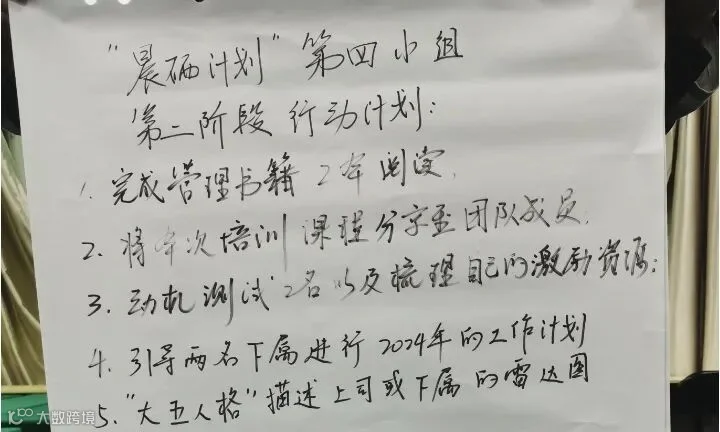 "晨硒计划"第四小组
第二阶段 行动计划:
1. 完成管理书籍 2本阅读.
2. 将本次培训课程分享至团队成员.
3. 动机测试 2名以及梳理自己的激励资源;
4. 引导两名下属进行2024年的工作计划
5. "大五人格"描述上司或下属的雷达图
大数跨境